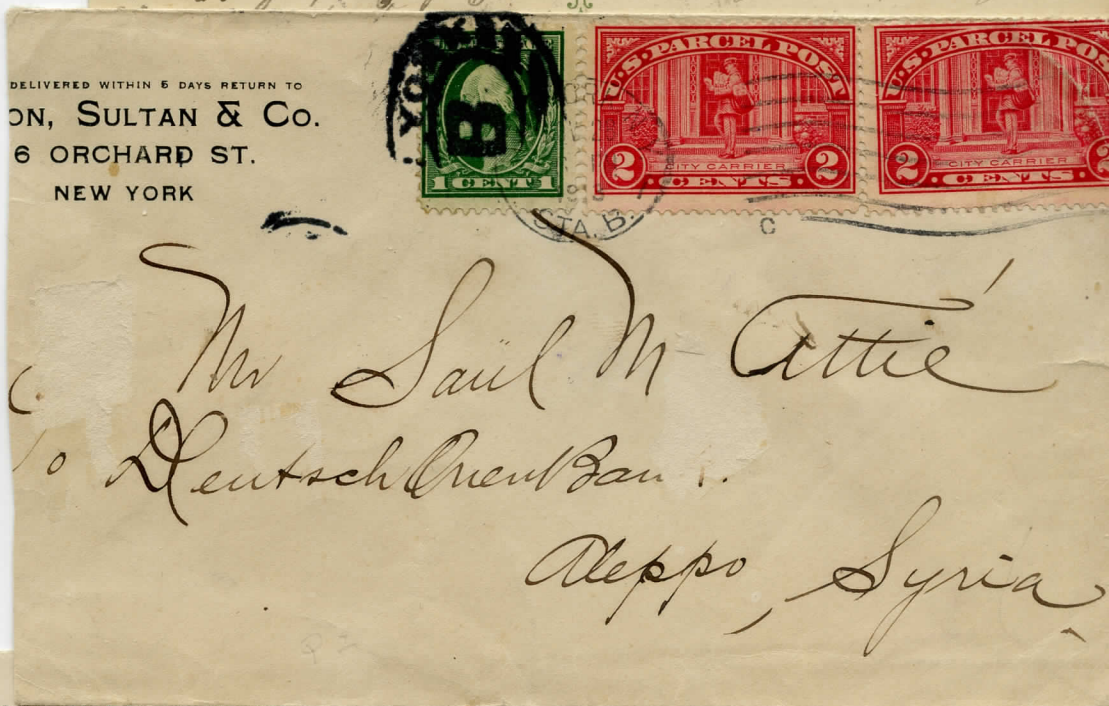 DELIVERED WITHIN 5 DAYS RETURN TO
ON, SULTAN & CO.
6 ORCHARD ST.
NEW YORK
YORK
B
1 CENT 1
STA. B.
U.S. PARCEL POST
CITY CARRIER
2 CENTS 2
U.S. PARCEL POST
CITY CARRIER
2 CENTS 2
C
Mr Saül M Attié
Deutsch Orien Ban
Aleppo, Syria